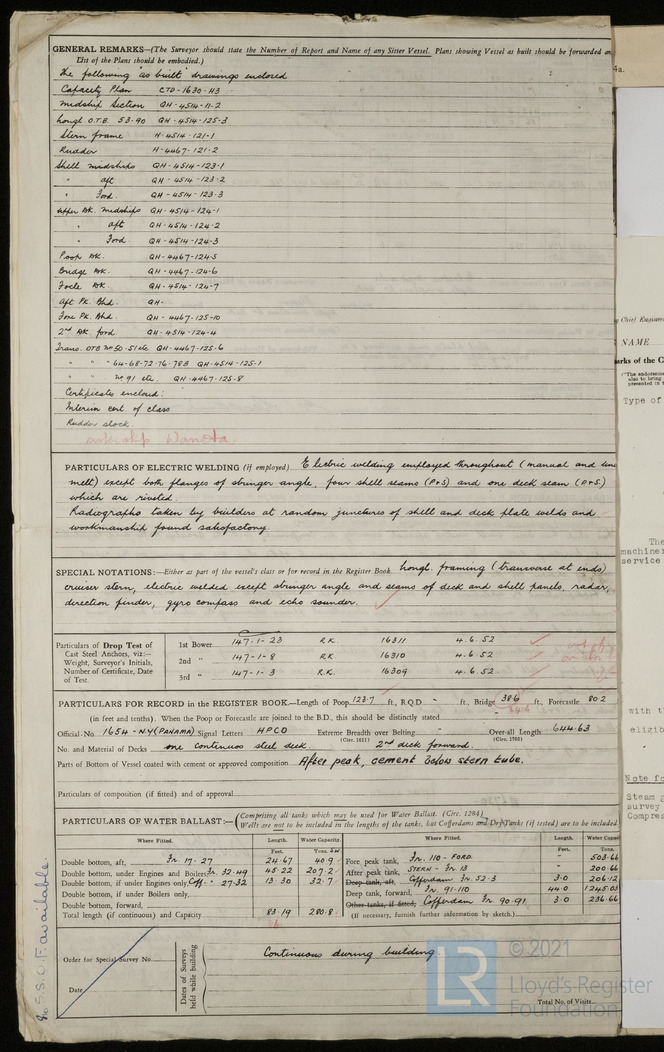 GENERAL REMARKS—(The Surveyor should state the Number of Report and Name of any Sister Vessel. Plans showing Vessel as built should be forwarded
List of the Plans should be embodied.)
The following "as built" drawings enclosed
Capacity Plan CTD-1630-H3
Midship Section QH-4514-11-2
Longl O.T.B. 53-90 QH-4514-125-3
Stern frame H-4514-121-1
Rudder H-4467-121-2
Shell midships QH-4514-123-1
" aft QH-4514-123-2
" Ford. QH-4514-123-3
Upper Dk. midships QH-4514-124-1
" aft QH-4514-124-2
" Ford QH-4514-124-3
Poop Dk. QH-4467-124-5
Bridge Dk. QH-4467-124-6
Focle Dk. QH-4514-124-7
Aft Pk. Bhd. QH-
Fore Pk. Bhd. QH-4467-125-10
2nd Dk ford. QH-4514-124-4
Trans. OTB No 50-51 etc QH-4467-125-6
" " " 64-68-72-76-78B QH-4514-125-1
" " No 91 etc. QH-4467-125-8
Certificates enclosed:
Interim cert. of class
Rudder stock
sistership Waneta.
PARTICULARS OF ELECTRIC WELDING (if employed) Electric welding employed throughout (manual and
melt) except both flanges of stringer angle, four shell seams (P&S) and one deck seam (P&S)
which are riveted.
Radiographs taken by builders at random junctures of shell and deck plate welds and
workmanship found satisfactory.
SPECIAL NOTATIONS:—Either as part of the vessel's class or for record in the Register Book. Longl. framing (transverse at ends)
cruiser stern, electric welded except stringer angle and seams of deck and shell panels, radar,
direction finder, gyro compass and echo sounder.
Particulars of Drop Test of
Cast Steel Anchors, viz:—
Weight, Surveyor's Initials,
Number of Certificate, Date
of Test.
1st Bower 147-1-23 R.K. 16311 4.6.52
2nd " 147-1-8 R.K. 16310 4.6.52
3rd " 147-1-3 R.K. 16309 4.6.52
PARTICULARS FOR RECORD in the REGISTER BOOK.—Length of Poop 123.7 ft., R.Q.D. - ft., Bridge 38.6 ft., Forecastle 80.2
(in feet and tenths). When the Poop or Forecastle are joined to the B.D., this should be distinctly stated
Official-No. 1654-N.Y (PANAMA) Signal Letters HPCO Extreme Breadth over Belting - Over-all Length 644.63
(Circ. 1611) (Circ. 1702)
No. and Material of Decks one continuos steel deck 2nd deck forward.
Parts of Bottom of Vessel coated with cement or approved composition After peak, cement below stern tube.
Particulars of composition (if fitted) and of approval
PARTICULARS OF WATER BALLAST:— (Comprising all tanks which may be used for Water Ballast. (Circ. 1284)
Wells are not to be included in the lengths of the tanks, but Cofferdams and Dry Tanks (if tested) are to be included.
Where Fitted. Length. Water Capacity. Where Fitted. Length. Water Capaci
Feet. Tons. Feet. Tons.
Double bottom, aft, Fr. 17-27 24.67 40.9 Fore peak tank, Fr. 110-FORD. - 503.66
Double bottom, under Engines and Boilers Fr. 32-49 45.22 207.2 After peak tank, STERN-Fr. 13 - 200.66
Double bottom, if under Engines only Coff. " 27-32 13.30 32.7 Deep tank, aft, Cofferdam Fr. 52.3 3.0 206.12
Double bottom, if under Boilers only Deep tank, forward, Fr. 91-110 44.0 1245.03
Double bottom, forward, Other tanks, if fitted, Cofferdam Fr. 90-91 3.0 236.66
Total length (if continuous) and Capacity 83.19 280.8 (If necessary, furnish further information by sketch.)
Order for Special Survey No.
Date
Dates of Surveys
held while building
Continuous during building
Total No. of Visits
No S.S.C. If available.
© 2021
LR
Lloyd's Register
Foundation
4a.
Chief Engineer
NAME
arks of the G
Type of
The
machiner
service
with t
eligib
Note fo
Steam g
survey
Compres